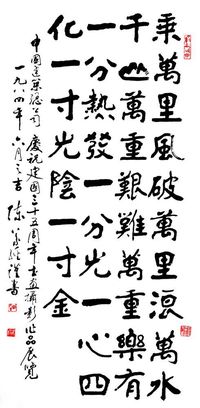 乘萬里風破萬里浪萬水
千山萬重艱難萬重樂有
一分熱發一分光一心四
化一寸光陰一寸金
中國建築總公司 慶祝建國三十五周年書画攝影作品展覽
一九八四年六月之吉 陳 謹書